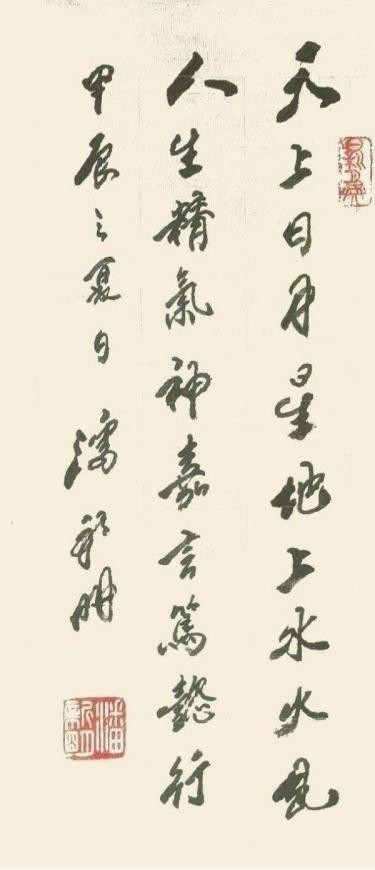 天上日月星地上水火風
人生精氣神嘉言篤懿行
甲辰之夏日 潘新明